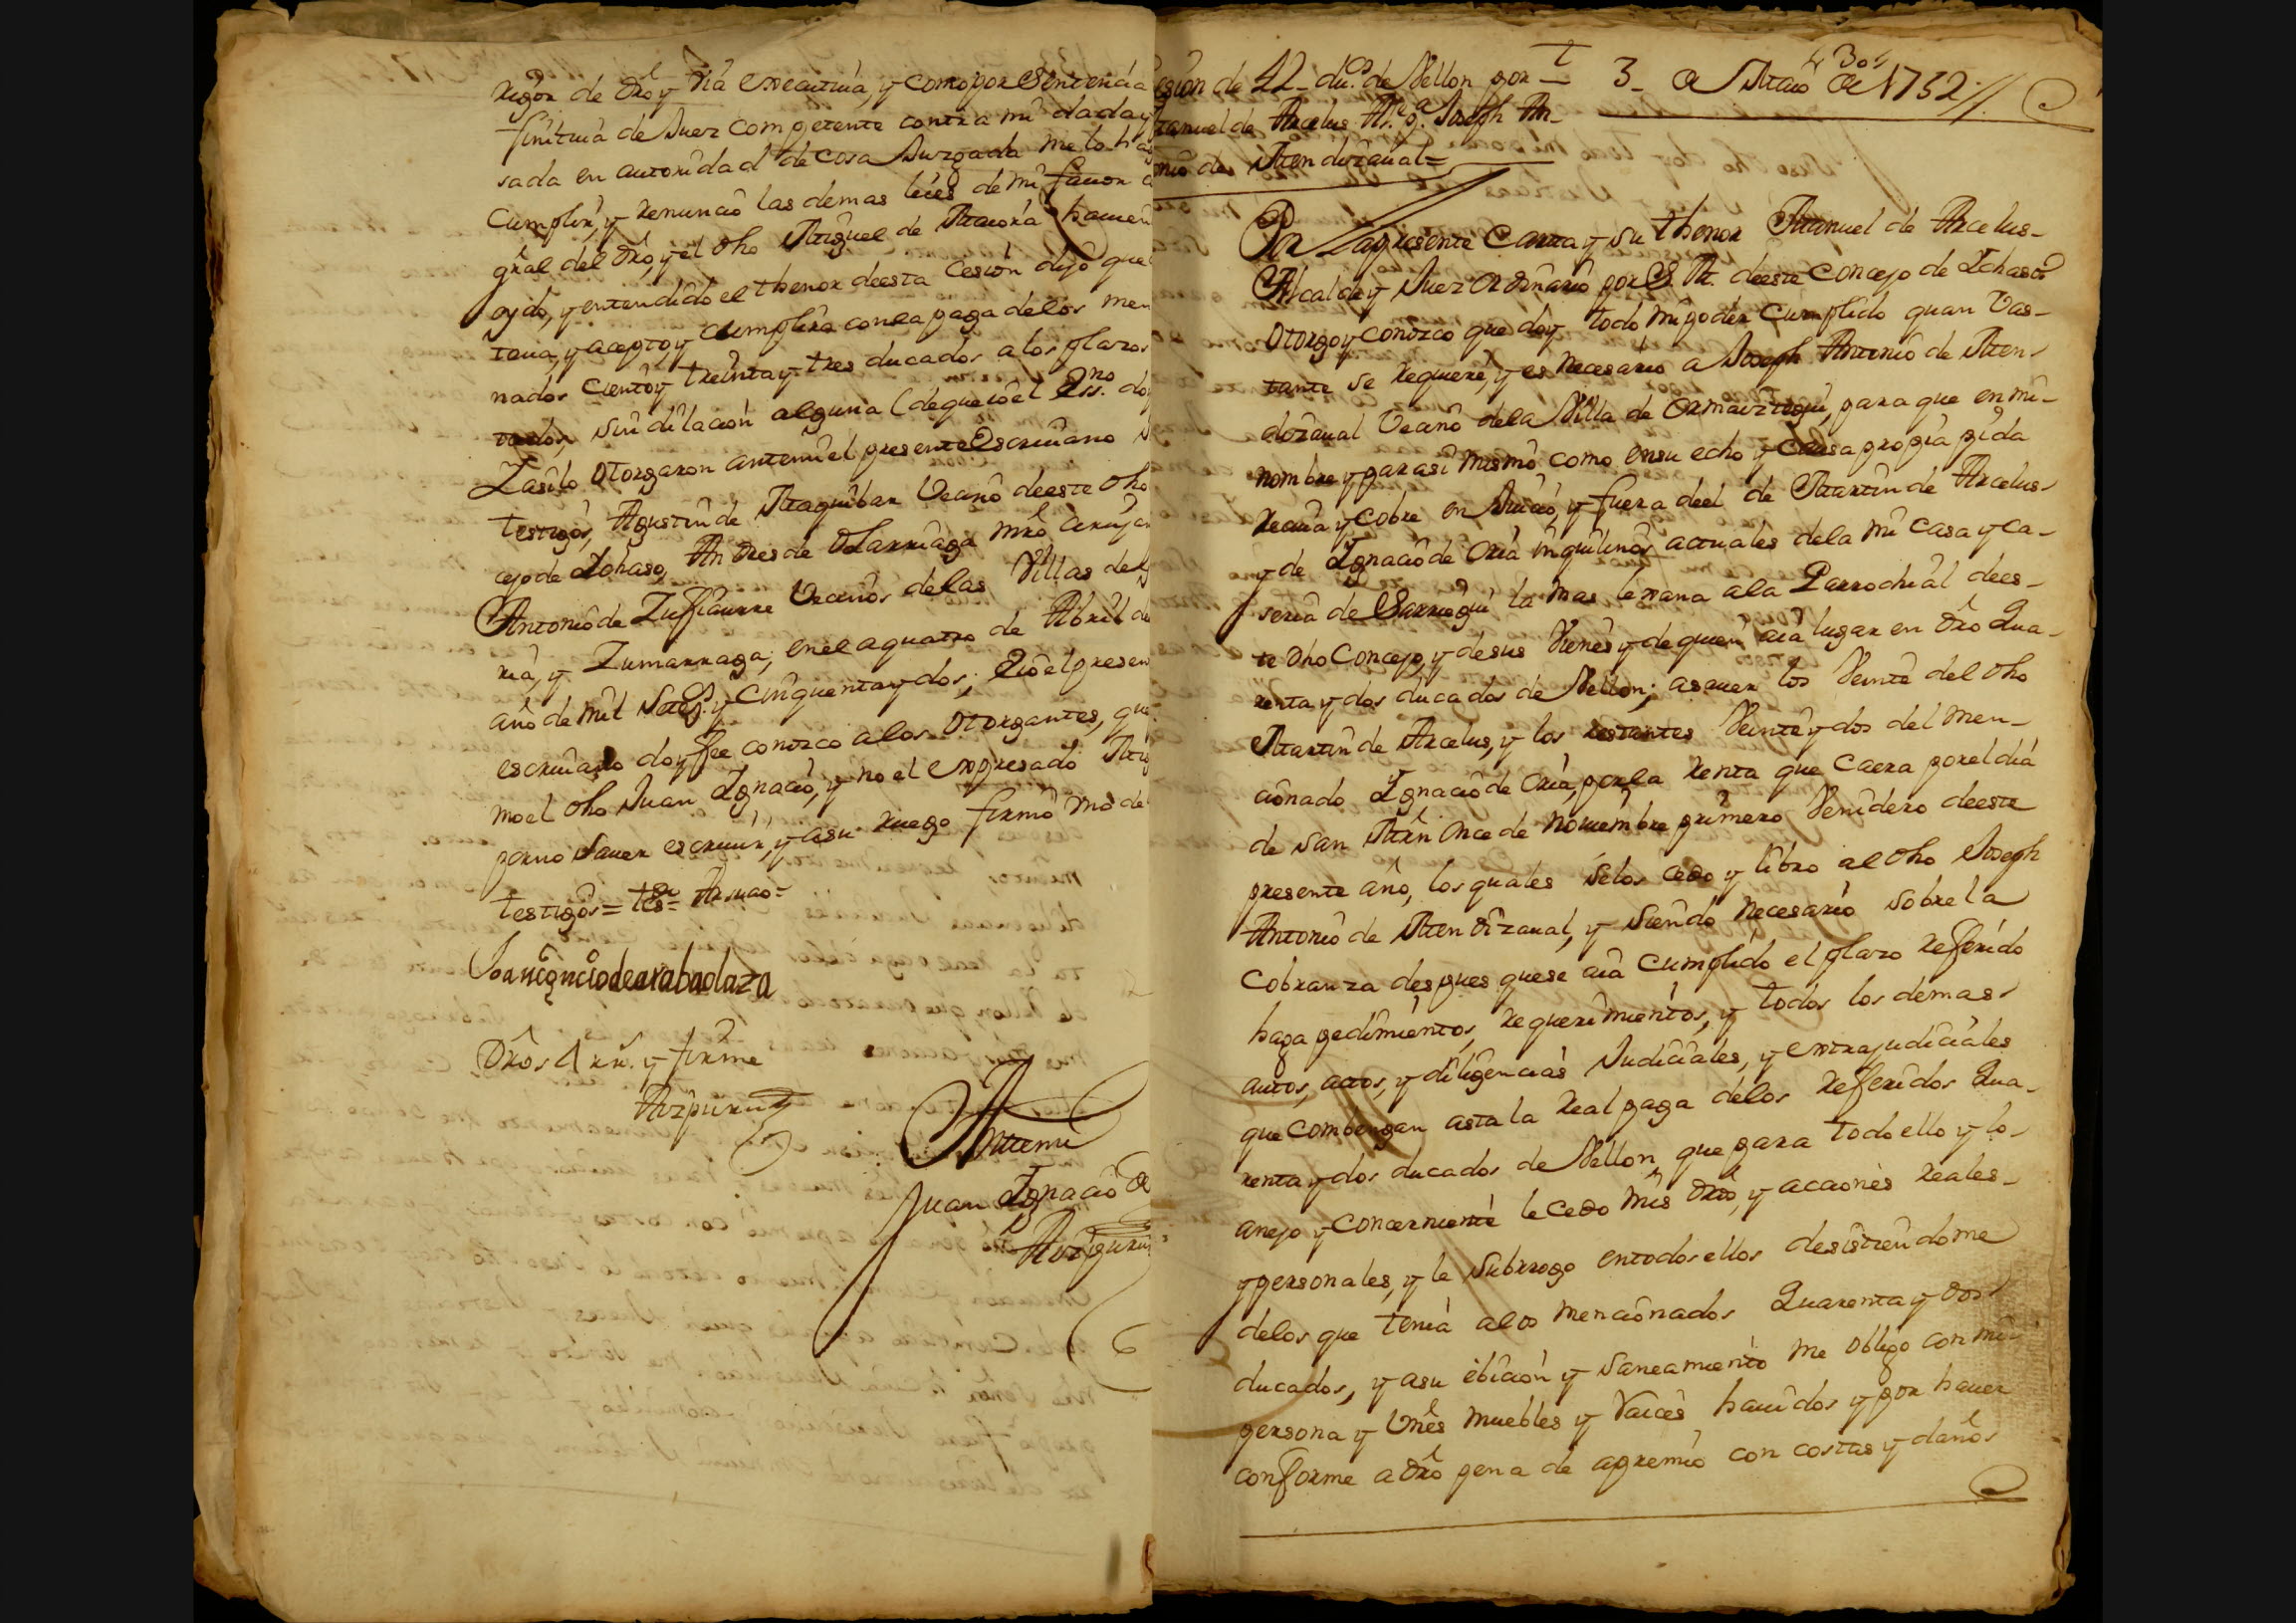 rigor de dro y via executiva, y como por Sentencia
finitiva de Juez competente contra mi dada y
sada en autoridad de cosa Juzgada me lo hag
Cumplir, y renuncio las demas leies de mi favor
gral del dro, y el dho Miguel de haviend
oydo, y entendido el thenor deesta Cesion dijo que
tenia, y acepto y cumplira conla paga delos men
nados Ciento y treinta y tres ducados alos plazos
sin dilacion alguna (de que io el Essno. doy
I asilo otorgaron antemi el presente Escrivano
testigos, Agustin de Vecino deeste dho
cejo de Ichaso, Andres de Olarriaga mro cirujan
Antonio de Zufiaurre Vecinos delas Villas de
ria, y Zumarraga; en el a quatro de Abril de
año de mil Setezs. y Cinquenta y dos; E io el presen
escrivano doy fee conozco alos otorgantes, que
mo el dho Juan Ignacio, y no el expresado Mig
por no Saver escrivir, y asu ruego firmó uno de
testigos=
Joan ignçio de arabaolaza
Dros 1 rl. y firme
Aizpuru
Antemi
Juan Ignacio de
Aizpuru
esion de 42 dus. de Vellon por
3 de Maio de 1752
anuel de Arcelus Joseph An
nio de Mendizaual=
Por la presente Carta y su thenor Manuel de Arcelus
Alcalde y Juez ordinario por S. M. deeste Concejo de Ichaso
otorgo y conozco que doy todo mi poder Cumplido quan Vas-
tante se requiere, y es necesario a Joseph Antonio de Men-
dizaual Vecino dela Villa de Ormaiztegui, para que en mi
nombre y para si mismo como en su echo y causa propia pida
reciva y cobre en Juicio, y fuera deel de Martin de Arcelus
y de Ignacio de Oria inquilinos actuales dela mi Casa y ca-
seria de Sarriegui la mas cercana ala Parrochial dees-
te dho Concejo, y de sus Vienes y de quien aia lugar en dro Qua-
renta y dos ducados de Vellon; asaver los Veinte del dho
Martin de Arcelus, y los restantes Veinte y dos del men-
cionado Ignacio de Oria, por la renta que Caera por el dia
de San Mrn once de noviembre primero Venidero deeste
presente año, los quales selos cedo y libro al dho Joseph
Antonio de Mendizaual, y siendo necesario sobre la
Cobranza despues que se aia cumplido el plazo referido
haga pedimientos, requerimientos, y todos los demas
autos, actos, y diligencias Judiciales, y extrajudiciales
que combengan asta la real paga delos referidos Qua-
renta y dos ducados de Vellon, que para todo ello y lo
anejo y concerniente le cedo mis dros, y acciones reales
y personales, y le Subrrogo entodos ellos desistiendome
delos que tenia alos mencionados Quarenta y dos
ducados, y asu ebicion y saneamiento me obligo con mi
persona y Vnes muebles y raices havidos y por haver
conforme a dro pena de apremio con costas y daños